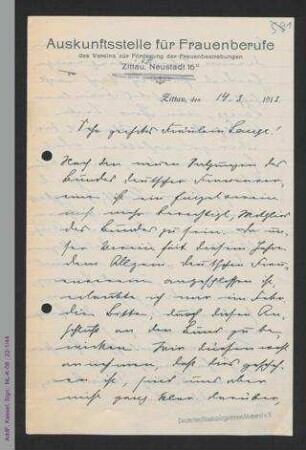 581
Auskunftsstelle für Frauenberufe
des Vereins zur Förderung der Frauenbestrebungen
Zittau, Neustadt 16
Zittau, den 14. 3. 1913.
Sehr geehrtes Fräulein Lange!
Nach den neuen Satzungen des
Bundes deutscher Frauenver-
eine ist ein Einzelverein
nicht mehr berechtigt, Mitglied
des Bundes zu sein. Da un-
ser Verein seit diesem Jahre
dem Allgem. deutschen Frau-
enverein angeschlossen ist,
erlaubte ich mir
die Bitte, durch diesen An-
schluß an den Bund zu be-
wirken. Wir dürfen wohl
annehmen, daß dies gesche-
hen ist, sind uns aber
nicht ganz klar darüber,
AddF, Kassel, Sign.: NL-K-08 ; 22-1/44